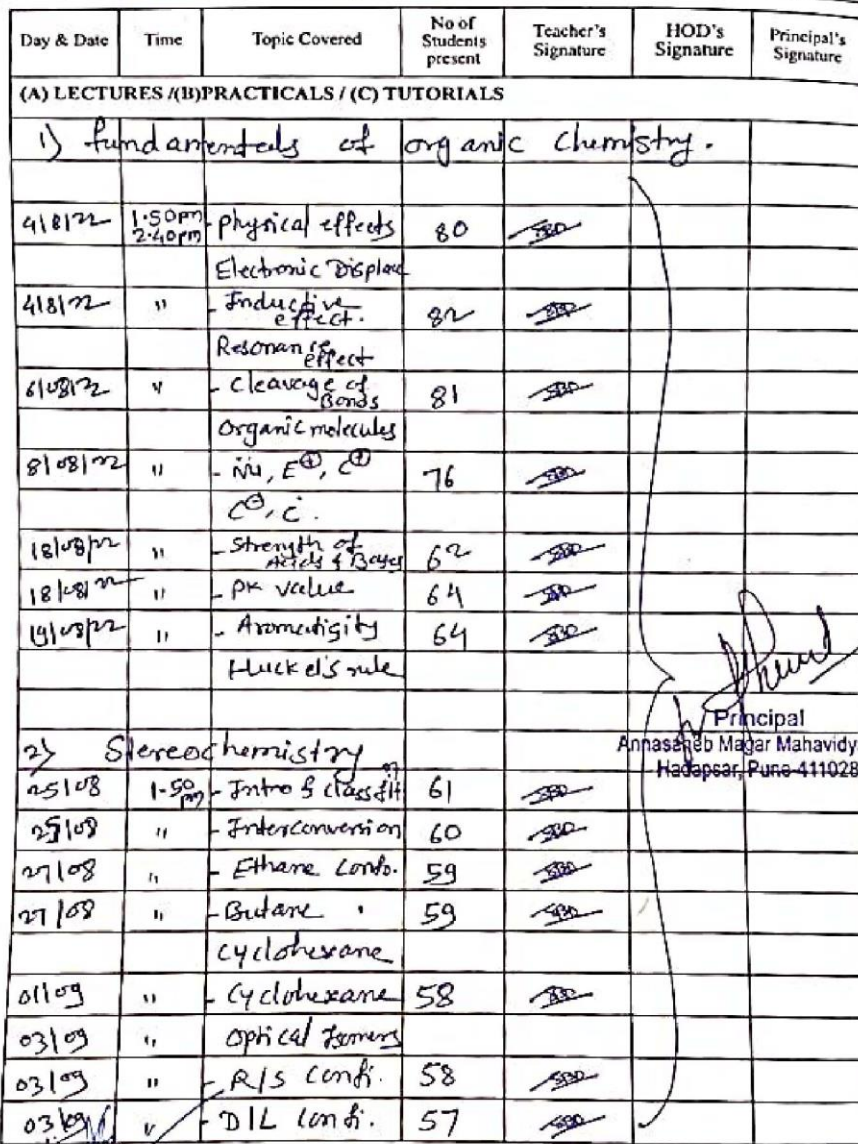 Day & Date Time Topic Covered No of Students present Teacher's Signature HOD's Signature Principal's Signature
(A) LECTURES /(B)PRACTICALS / (C) TUTORIALS
1) fundamentals of organic Chemistry.
4/8/22 1.50pm 2.40pm - physical effects 80
Electronic Displace
4/8/22 " - Inductive effect. 82
Resonance effect
6/08/22 " - Cleavage of Bonds 81
Organic molecules
8/08/22 " - Nu, E⊕, C⊕ 76
C⊖, C.
18/08/22 " - Strength of Acids & Bases 62
18/08/22 " - PK value 64
19/08/22 " - Aromatisity 64
Huckel's rule
Principal
Annasaheb Magar Mahavidy
Hadapsar, Pune-411028
2) Stereochemistry
25/08 1-50 pm - Intro & classifn 61
25/08 " - Interconversion 60
27/08 " - Ethane Confo. 59
27/08 " - Butane " 59
Cyclohexane
01/09 " - Cyclohexane 58
03/09 " Optical Isomers
03/09 " - R/S Confi. 58
03/09 " - D/L Confi. 57